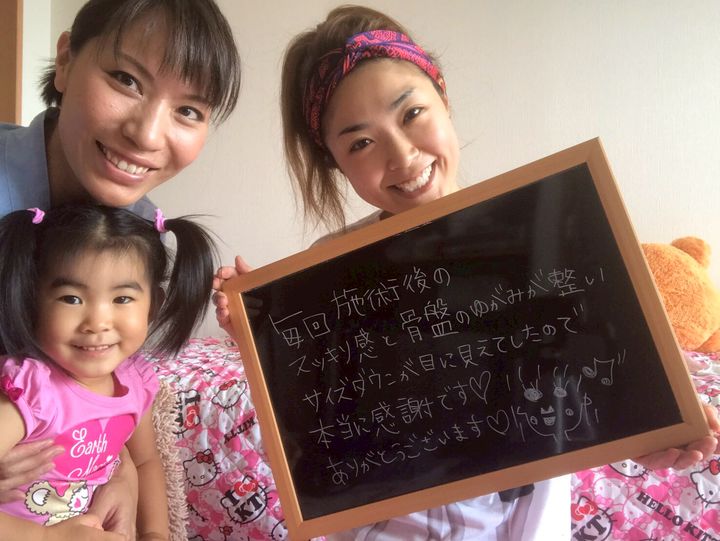 毎回施術後の
スッキリ感と骨盤のゆがみが整い
サイズダウンが目に見えてしたので
本当に感謝です♡
ありがとうございます♡
Earth
HELLO KITTY
HELLO